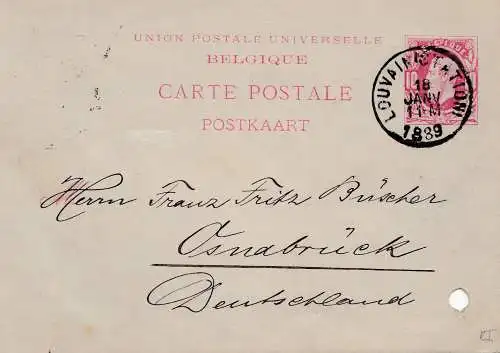 UNION POSTALE UNIVERSELLE
BELGIQUE
CARTE POSTALE
POSTKAART
LOUVAIN (STATION)
18
JANV
11-M
1889
10
Herrn Franz Fritz Büscher
Osnabrück
Deutschland